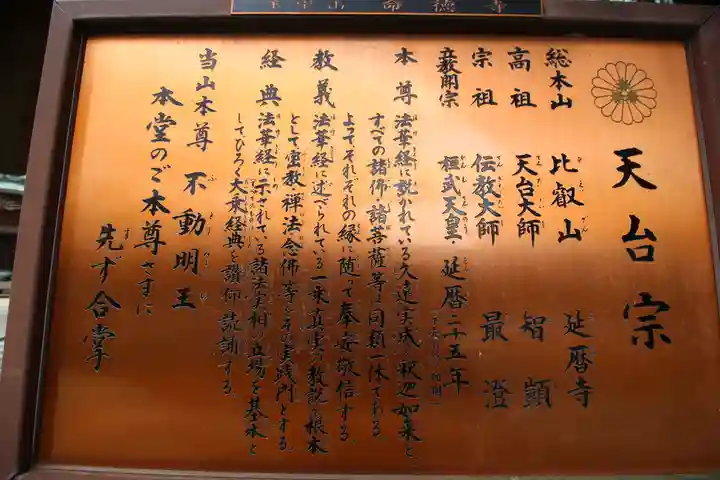 命徳寺
天台宗
総本山 比叡山 延暦寺
高祖 天台大師 智顗
宗祖 伝教大師 最澄
立教開宗 桓武天皇・延暦二十五年
本尊 法華経に説かれている久遠実成の釈迦如来と
すべての諸佛・諸菩薩等と同類一体である。
よってそれぞれの縁に随って奉安敬信する。
教義 法華経に述べられている一乗真実の教説を根本
として密教禅法念佛等をその実践門とする。
経典 法華経に示されている諸法実相の立場を基本と
してひろく大乗経典を讃仰読誦する。
当山本尊 不動明王
本堂のご本尊さまに
先ず合掌